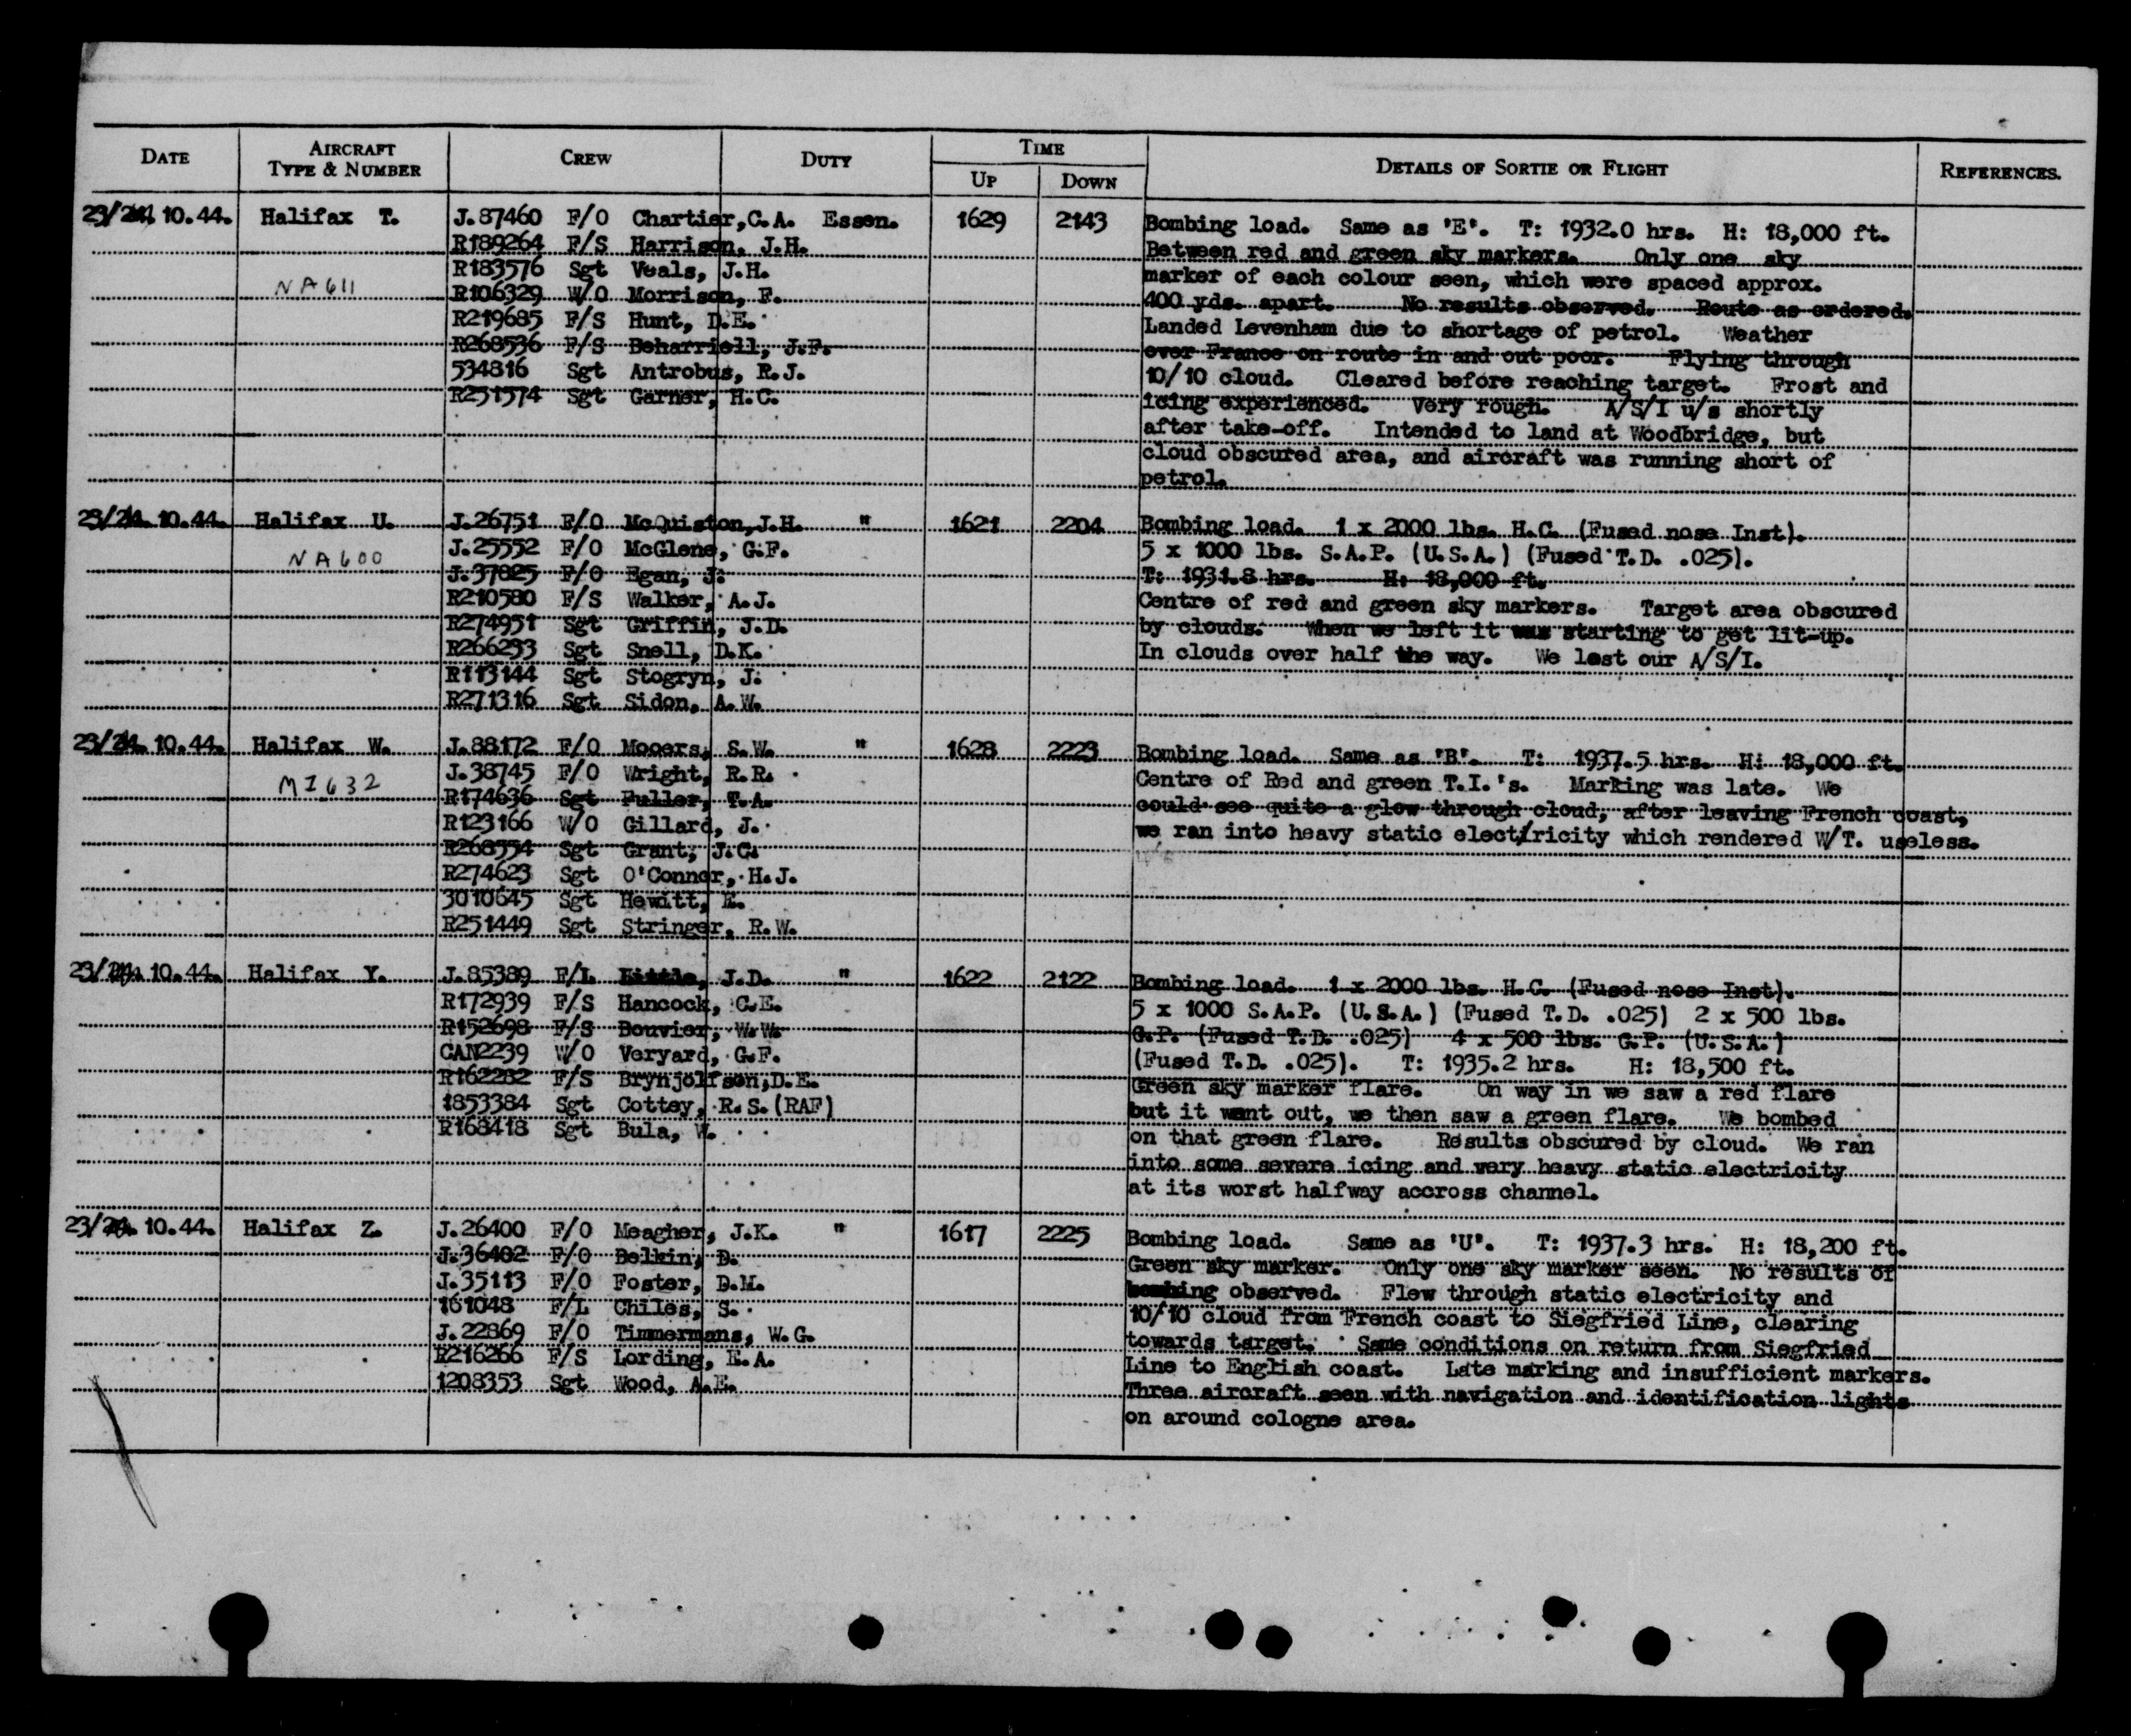 DATE AIRCRAFT TYPE & NUMBER CREW DUTY TIME UP DOWN DETAILS OF SORTIE OR FLIGHT REFERENCES.
23/24. 10.44. Halifax T. J.87460 F/O Chartier,C.A. Essen. 1629 2143 Bombing load. Same as 'E'. T: 1932.0 hrs. H: 18,000 ft.
R189264 F/S Harrison, J.H. Between red and green sky markers. Only one sky
R183576 Sgt Veals, J.H. marker of each colour seen, which were spaced approx.
NA611 R106329 W/O Morrison, F. 400 yds. apart. No results observed. Route as ordered.
R219685 F/S Hunt, D.E. Landed Levenham due to shortage of petrol. Weather
R268536 F/S Beharriell, J.F. over France on route in and out poor. Flying through
534816 Sgt Antrobus, R.J. 10/10 cloud. Cleared before reaching target. Frost and
R251574 Sgt Garner, H.C. icing experienced. Very rough. A/S/I u/s shortly
after take-off. Intended to land at Woodbridge, but
cloud obscured area, and aircraft was running short of
petrol.
23/24. 10.44. Halifax U. J.26751 F/O McQuiston,J.H. " 1621 2204 Bombing load. 1 x 2000 lbs. H.C. (Fused nose Inst).
NA600 J.25552 F/O McGlene, G.F. 5 x 1000 lbs. S.A.P. (U.S.A.) (Fused T.D. .025).
J.37825 F/O Egan, J. T: 1931.8 hrs. H: 18,000 ft.
R210580 F/S Walker, A.J. Centre of red and green sky markers. Target area obscured
R274951 Sgt Griffin, J.D. by clouds. When we left it was starting to get lit-up.
R266293 Sgt Snell, D.K. In clouds over half the way. We lost our A/S/I.
R113144 Sgt Stogryn, J.
R271316 Sgt Sidon, A.W.
23/24. 10.44. Halifax W. J.88172 F/O Mooers, S.W. " 1628 2223 Bombing load. Same as 'B'. T: 1937.5 hrs. H: 18,000 ft.
MZ632 J.38745 F/O Wright, R.R. Centre of Red and green T.I.'s. Marking was late. We
R174636 Sgt Fuller, T.A. could see quite a glow through cloud, after leaving French coast,
R123166 W/O Gillard, J. we ran into heavy static elect/ricity which rendered W/T. useless.
R268554 Sgt Grant, J.C.
R274623 Sgt O'Connor, H.J.
3010645 Sgt Hewitt, E.
R251449 Sgt Stringer, R.W.
23/24. 10.44. Halifax Y. J.85389 F/L J.D. " 1622 2122 Bombing load. 1 x 2000 lbs. H.C. (Fused nose Inst).
R172939 F/S Hancock, C.E. 5 x 1000 S.A.P. (U.S.A.) (Fused T.D. .025) 2 x 500 lbs.
R152698 F/S Bouvier, W.W. G.P. (Fused T.D. .025) 4 x 500 lbs. G.P. (U.S.A.)
CAN2239 W/O Veryard, G.F. (Fused T.D. .025). T: 1935.2 hrs. H: 18,500 ft.
R162282 F/S Brynjolfson,D.E. Green sky marker flare. On way in we saw a red flare
1853384 Sgt Cottey, R.S.(RAF) but it want out, we then saw a green flare. We bombed
R168418 Sgt Bula, W. on that green flare. Results obscured by cloud. We ran
into some severe icing and very heavy static electricity
at its worst halfway accross channel.
23/24. 10.44. Halifax Z. J.26400 F/O Meagher, J.K. " 1617 2225 Bombing load. Same as 'U'. T: 1937.3 hrs. H: 18,200 ft.
J.36402 F/O Belkin, D. Green sky marker. Only one sky marker seen. No results of
J.35113 F/O Foster, D.M. bombing observed. Flew through static electricity and
161048 F/L Chiles, S. 10/10 cloud from French coast to Siegfried Line, clearing
J.22869 F/O Timmermans, W.G. towards target. Same conditions on return from Siegfried
R216266 F/S Lording, E.A. Line to English coast. Late marking and insufficient markers.
1208353 Sgt Wood, A.E. Three aircraft seen with navigation and identification lights
on around cologne area.